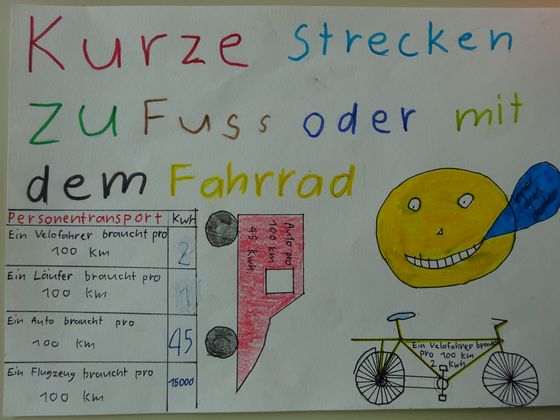 Kurze Strecken
zu Fuss oder mit
dem Fahrrad
Personentransport Kwh
Ein Velofahrer braucht pro
100 Km 2
Ein Läufer braucht pro
100 Km 1
Ein Auto braucht pro
100 Km 45
Ein Flugzeug braucht pro
100 Km 15000
Auto pro
100 Km
45 Kwh
immer
denken
Ein Velofahrer brauch
pro 100 Km
2 Kwh